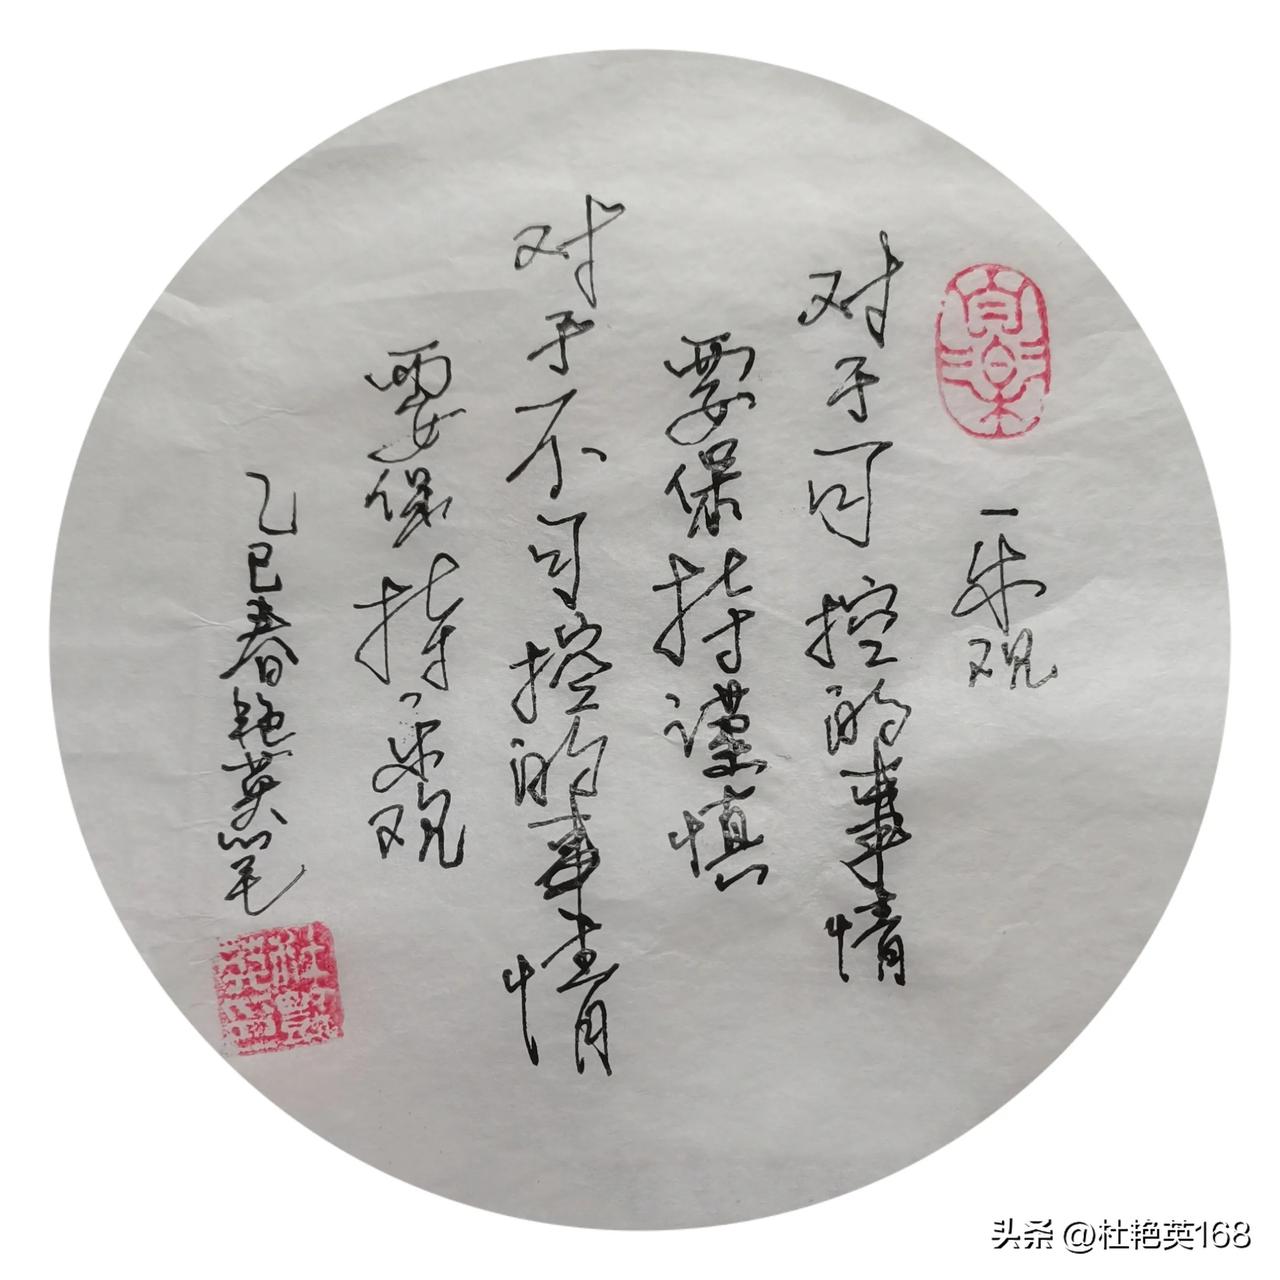 乐观
对于可控的事情
要保持谨慎
对于不可控的事情
要保持乐观
乙巳春艳英笔
杜艷英印
头条 @杜艳英168